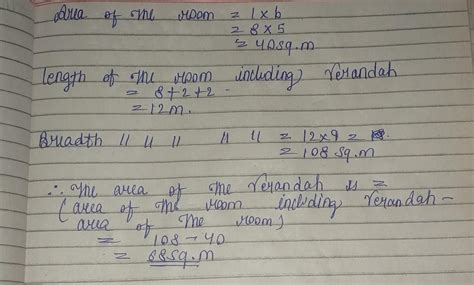 Area of the room = l × b
= 8 × 5
= 40sq.m
length of the room including Verandah
= 8+2+2
= 12m.
Breadth " " " " " = 12×9 =
= 108 sq.m
∴ The area of the Verandah is =
(area of the room including Verandah -
area of the room)
= 108 - 40
= 68sq.m